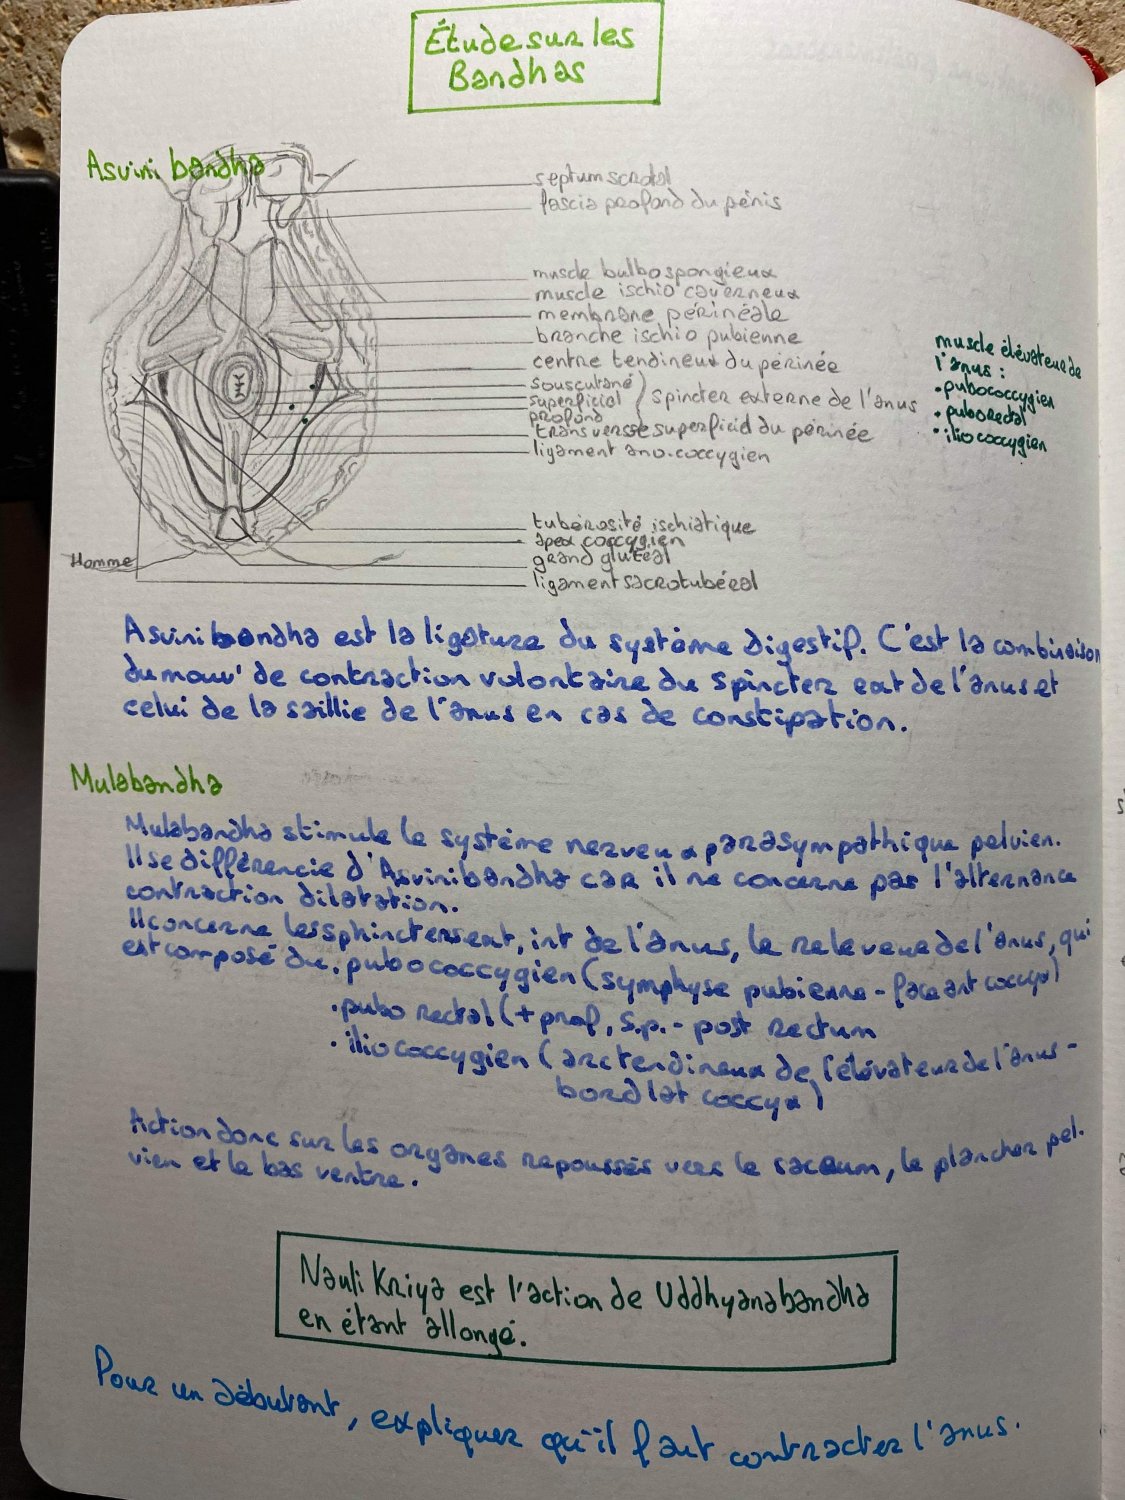 Étude sur les
Bandhas
Asvini bandha
septum scrotal
fascia profond du pénis
muscle bulbo spongieux
muscle ischio caverneux
membrane périnéale
branche ischio pubienne
centre tendineux du périnée
souscutané
superficial
profond
spincter externe de l'anus
transversse superficid du périnée
ligament ano-coccygien
tubérosité ischiatique
apex coccygien
grand glutéal
ligament sacrotubéral
Homme
muscle élévateur de
l'anus :
• pubococcygien
• puborectal
• iliococcygien
Asvinibandha est la ligature du système digestif. C'est la combinaison
du mouv' de contraction volontaire du spincter ext de l'anus et
celui de la saillie de l'anus en cas de constipation.
Mulabandha
Mulabandha stimule le système nerveux parasympathique pelvien.
Il se différencie d'Asvinibandha car il ne concerne pas l'alternance
contraction dilatation.
Il concerne les sphincters ext, int de l'anus, le releveur de l'anus, qui
est composé du : pubococcygien (symphyse pubienne - face ant coccyx)
• pubo rectal (+ prof, s.p. - post rectum
• ilio coccygien (arc tendineux de l'élévateur de l'anus -
bord lat coccyx)
Action donc sur les organes repoussés vers le sacrum, le plancher pel-
vien et le bas ventre.
Nauli Kriya est l'action de Uddhyanabandha
en étant allongé.
Pour un débutant, expliquer qu'il faut contracter l'anus.